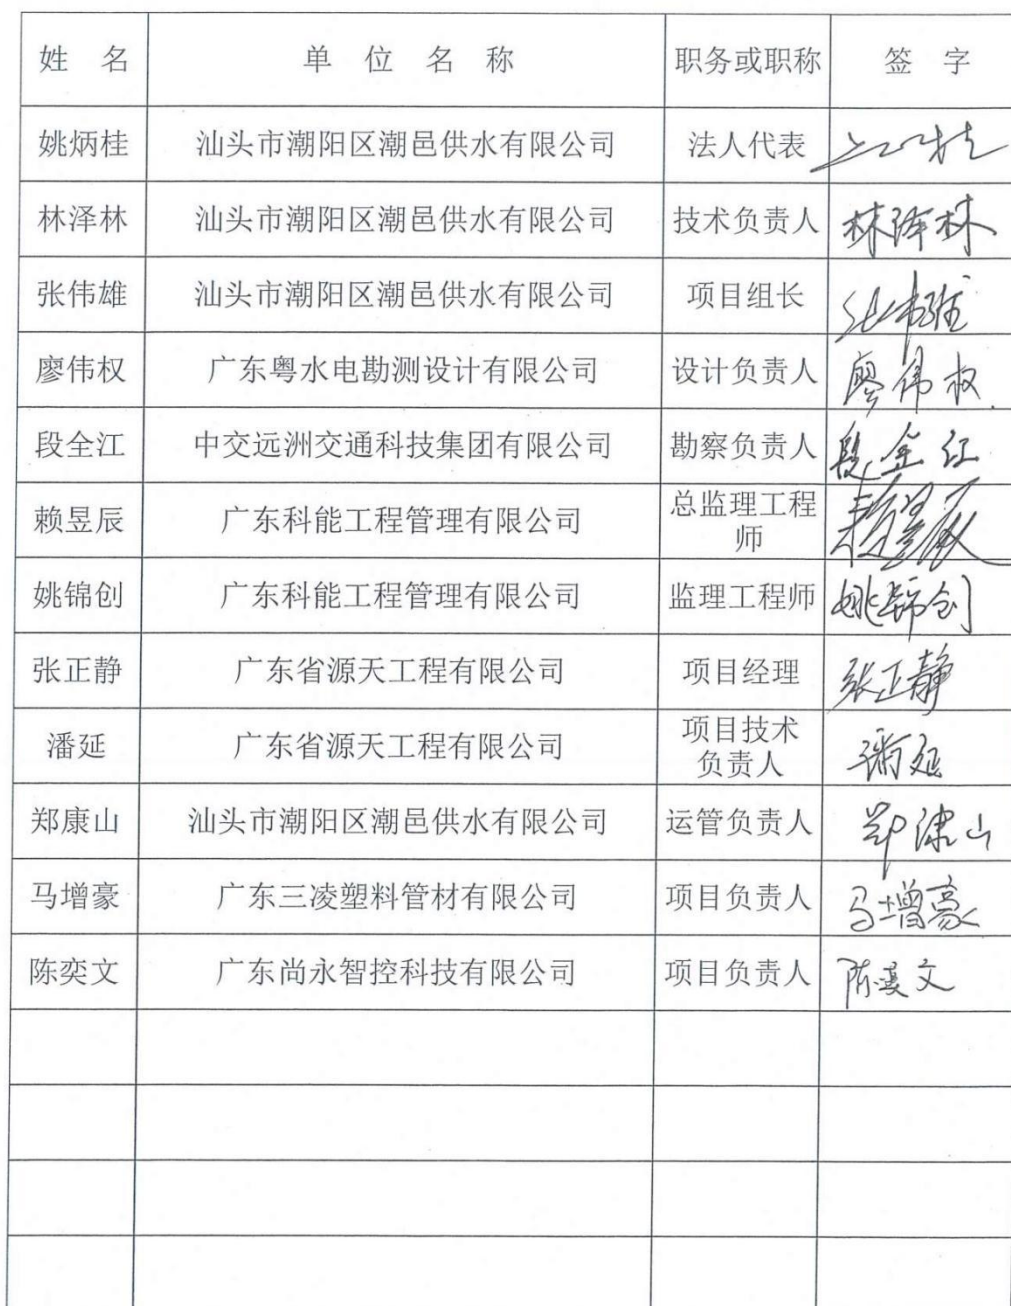 姓 名 单 位 名 称 职务或职称 签 字
姚炳桂 汕头市潮阳区潮邑供水有限公司 法人代表
林泽林 汕头市潮阳区潮邑供水有限公司 技术负责人 林泽林
张伟雄 汕头市潮阳区潮邑供水有限公司 项目组长 张伟雄
廖伟权 广东粤水电勘测设计有限公司 设计负责人 廖伟权
段全江 中交远洲交通科技集团有限公司 勘察负责人 段全江
赖昱辰 广东科能工程管理有限公司 总监理工程
师 赖昱辰
姚锦创 广东科能工程管理有限公司 监理工程师 姚锦创
张正静 广东省源天工程有限公司 项目经理 张正静
潘延 广东省源天工程有限公司 项目技术
负责人 潘延
郑康山 汕头市潮阳区潮邑供水有限公司 运管负责人 郑康山
马增豪 广东三凌塑料管材有限公司 项目负责人 马增豪
陈奕文 广东尚永智控科技有限公司 项目负责人 陈奕文